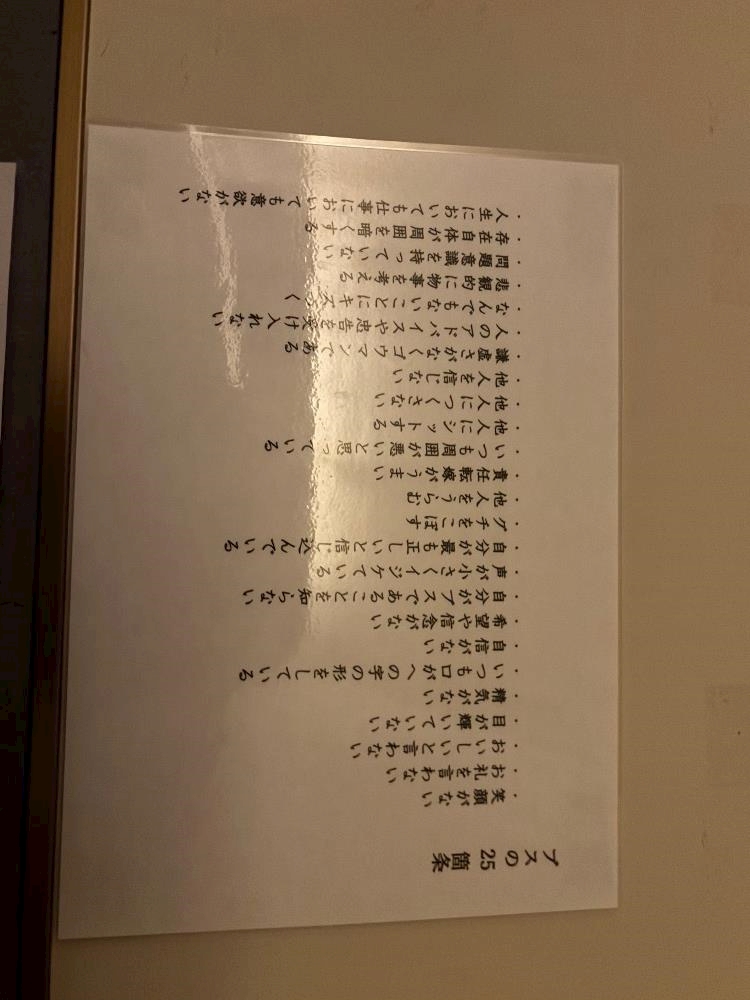 ブスの25箇条
・笑顔がない
・お礼を言わない
・おいしいと言わない
・目が輝いていない
・精気がない
・いつも口がへの字の形をしている
・自信がない
・希望や信念がない
・自分がブスであることを知らない
・声が小さくイジケている
・自分が最も正しいと信じ込んでいる
・グチをこぼす
・他人をうらむ
・責任転嫁がうまい
・いつも周囲が悪いと思っている
・他人にシットする
・他人につくさない
・他人を信じない
・謙虚さがなくゴウマンである
・人のアドバイスや忠告を受け入れない
・なんでもないことにキズつく
・悲観的に物事を考える
・問題意識を持っていない
・存在自体が周囲を暗くする
・人生においても仕事においても意欲がない